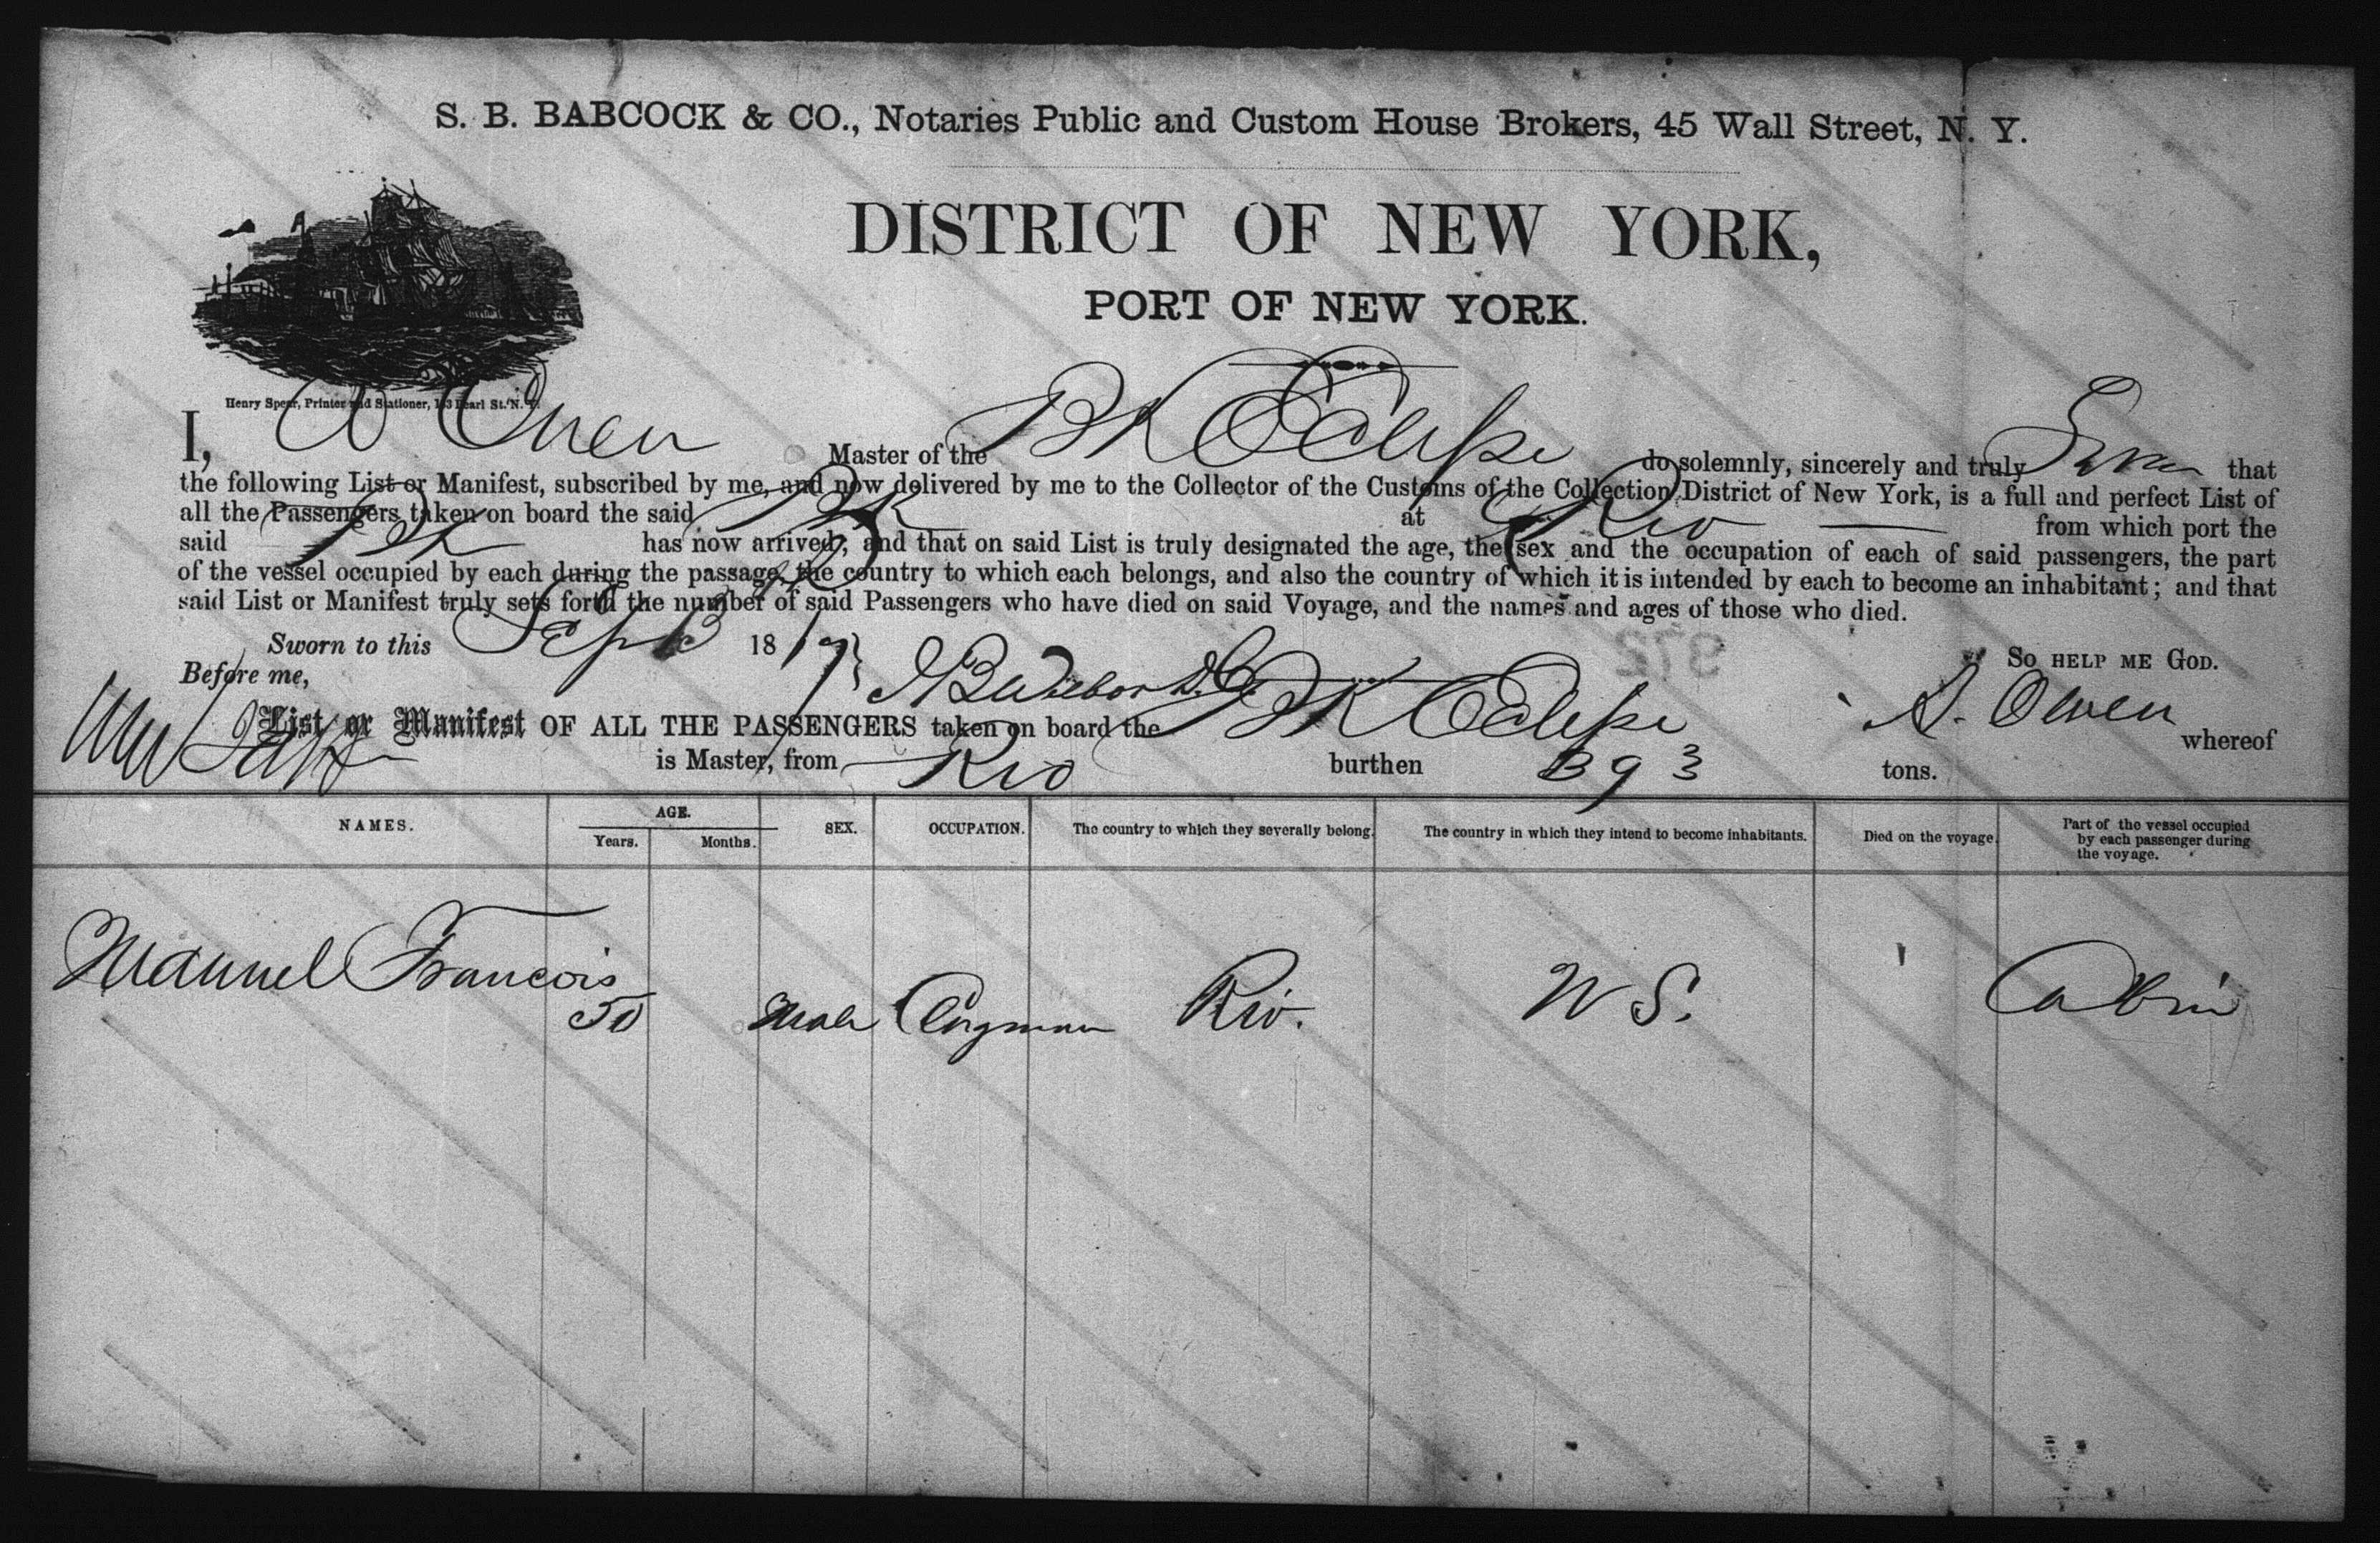 S. B. BABCOCK & CO., Notaries Public and Custom House Brokers, 45 Wall Street, N. Y.
DISTRICT OF NEW YORK,
PORT OF NEW YORK.
Henry Spear, Printer and Stationer, 133 Pearl St. N. Y.
I, Owen Master of the BK Eclipse do solemnly, sincerely and truly Swear that
the following List or Manifest, subscribed by me, and now delivered by me to the Collector of the Customs of the Collection District of New York, is a full and perfect List of
all the Passengers taken on board the said BK at Rio from which port the
said BK has now arrived; and that on said List is truly designated the age, the sex and the occupation of each of said passengers, the part
of the vessel occupied by each during the passage, the country to which each belongs, and also the country of which it is intended by each to become an inhabitant; and that
said List or Manifest truly sets forth the number of said Passengers who have died on said Voyage, and the names and ages of those who died.
Sworn to this Sept 18 So HELP ME GOD.
Before me,
List or Manifest OF ALL THE PASSENGERS taken on board the BK Eclipse Owen whereof
is Master, from Rio burthen 393 tons.
NAMES. AGE. Years. Months. SEX. OCCUPATION. The country to which they severally belong. The country in which they intend to become inhabitants. Died on the voyage. Part of the vessel occupied by each passenger during the voyage.
Manuel Francois 50 Male Rio. Cabin
972